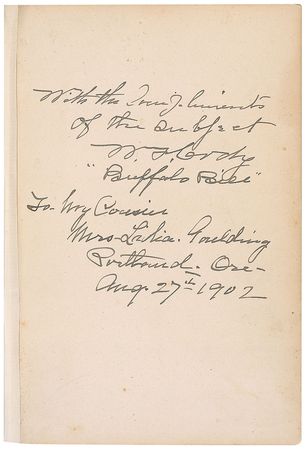 With the Compliments
of the subject
W. F. Cody
"Buffalo Bill"
To My Cousin
Mrs Lidia. Goulding
Portland. Ore-
Aug. 27th 1902